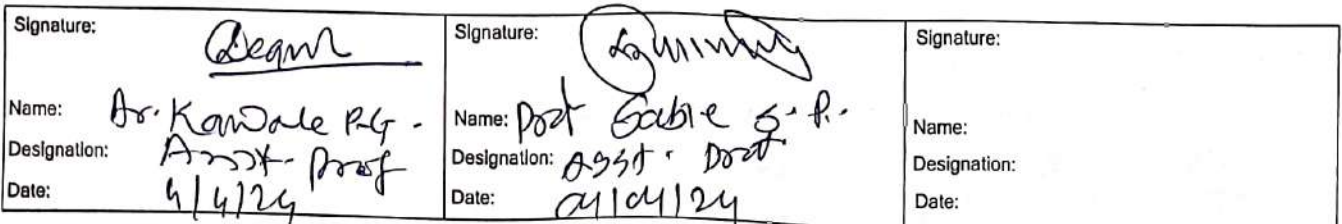 Signature:
Name: Dr. Kawale P.G.
Designation: Asst. Prof
Date: 4/4/24
Signature:
Name: Prof Sable S.P.
Designation: Asst. Prof
Date: 04/04/24
Signature:
Name:
Designation:
Date: